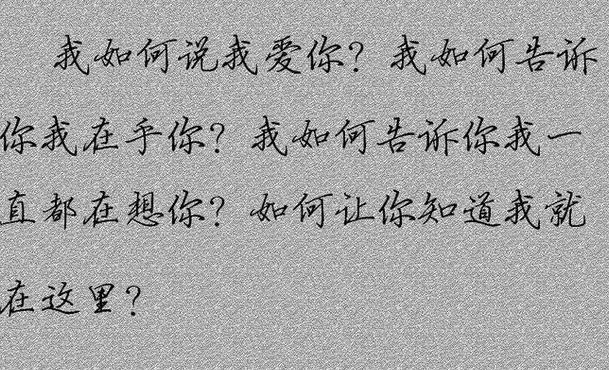 我如何说我爱你？我如何告诉
你我在乎你？我如何告诉你我一
直都在想你？如何让你知道我就
在这里？